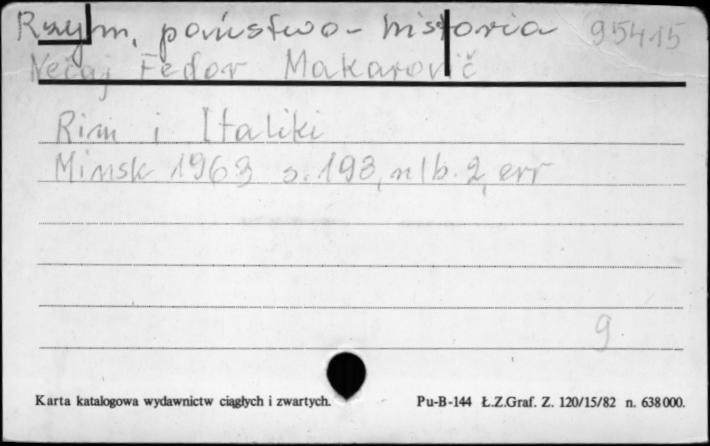 Rzym, państwo - historia 95415
Nečaj Fedor Makarovič
Rim i Italiki
Minsk 1963 s. 193, nlb. 2, err
9
Karta katalogowa wydawnictw ciągłych i zwartych. Pu-B-144 Ł.Z.Graf. Z. 120/15/82 n. 638000.